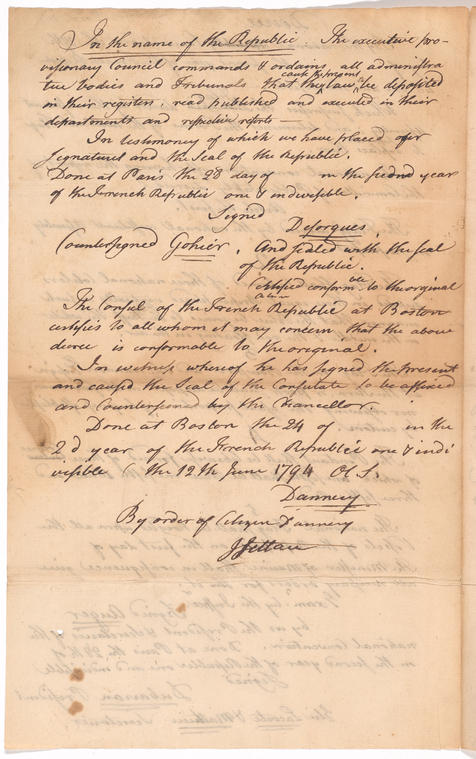 In the name of the Republic The executive pro-
visionary Council commands & ordains, all administra
tive bodies and Tribunals that
cause the present
law to be deposited
in their registers, read published and executed in their
departments and respective
In testimony of which we have placed our
signatures and the Seal of the Republic.
Done at Paris the 28 day of in the second year
of the French Republic one & indivisible.
Signed
Desorgues
Countersigned Gohier. And sealed with the Seal
of the Republic.
Certified conformable to the original
The Consul of the French Republic at Boston
certifies to all whom it may concern that the above
decree is conformable to the original.
In witness whereof he has signed the present
and caused the Seal of the Consulate to be affixed
and Countersigned by the Chancellor.
Done at Boston the 24 of in the
2d year of the French Republic one & indi
visible (the 12th June 1794 O. S.
Dannery
By order of Citizen Dannery